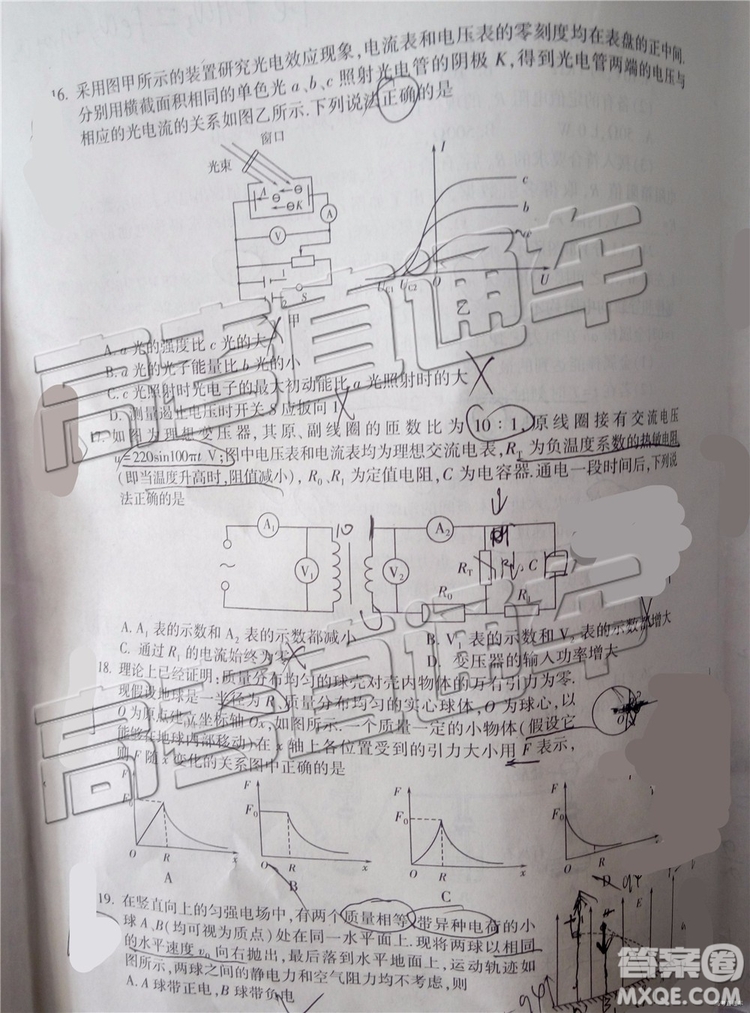 16. 采用图甲所示的装置研究光电效应现象,电流表和电压表的零刻度均在表盘的正中间.
分别用横截面积相同的单色光a、b、c照射光电管的阴极K,得到光电管两端的电压与
相应的光电流的关系如图乙所示.下列说法正确的是
窗口
光束
A
K
A
V
1
2
S
甲
I
c
b
a
U_C1 U_C2 O U
乙
A. a光的强度比c光的大
B. a光的光子能量比b光的小
C. c光照射时光电子的最大初动能比a光照射时的大
D. 测量遏止电压时开关S应扳向1
17. 如图为理想变压器,其原、副线圈的匝数比为10:1,原线圈接有交流电压
u=220sin100πt V;图中电压表和电流表均为理想交流电表,R_T为负温度系数的热敏电阻
(即当温度升高时,阻值减小),R_0、R_1为定值电阻,C为电容器.通电一段时间后,下列说
法正确的是
A_1 10 A_2
V_1 V_2 R_T C
R_0 R_1
A. A_1表的示数和A_2表的示数都减小 B. V_1表的示数和V_2表的示数都增大
C. 通过R_1的电流始终为零 D. 变压器的输入功率增大
18. 理论上已经证明:质量分布均匀的球壳对壳内物体的万有引力为零.
现假设地球是一半径为R、质量分布均匀的实心球体,O为球心,以
O为原点建立坐标轴Ox,如图所示.一个质量一定的小物体(假设它
能够在地球内部移动)在x轴上各位置受到的引力大小用F表示,
则F随x变化的关系图中正确的是
F F F F
F_0 F_0
O R x O R x O R x O R x
A B C D
19. 在竖直向上的匀强电场中,有两个质量相等、带异种电荷的小
球A、B(均可视为质点)处在同一水平面上.现将两球以相同
的水平速度v_0向右抛出,最后落到水平地面上,运动轨迹如
图所示,两球之间的静电力和空气阻力均不考虑,则
A. A球带正电,B球带负电
高考直通车
高考直通车
答案圈
MXQE.COM